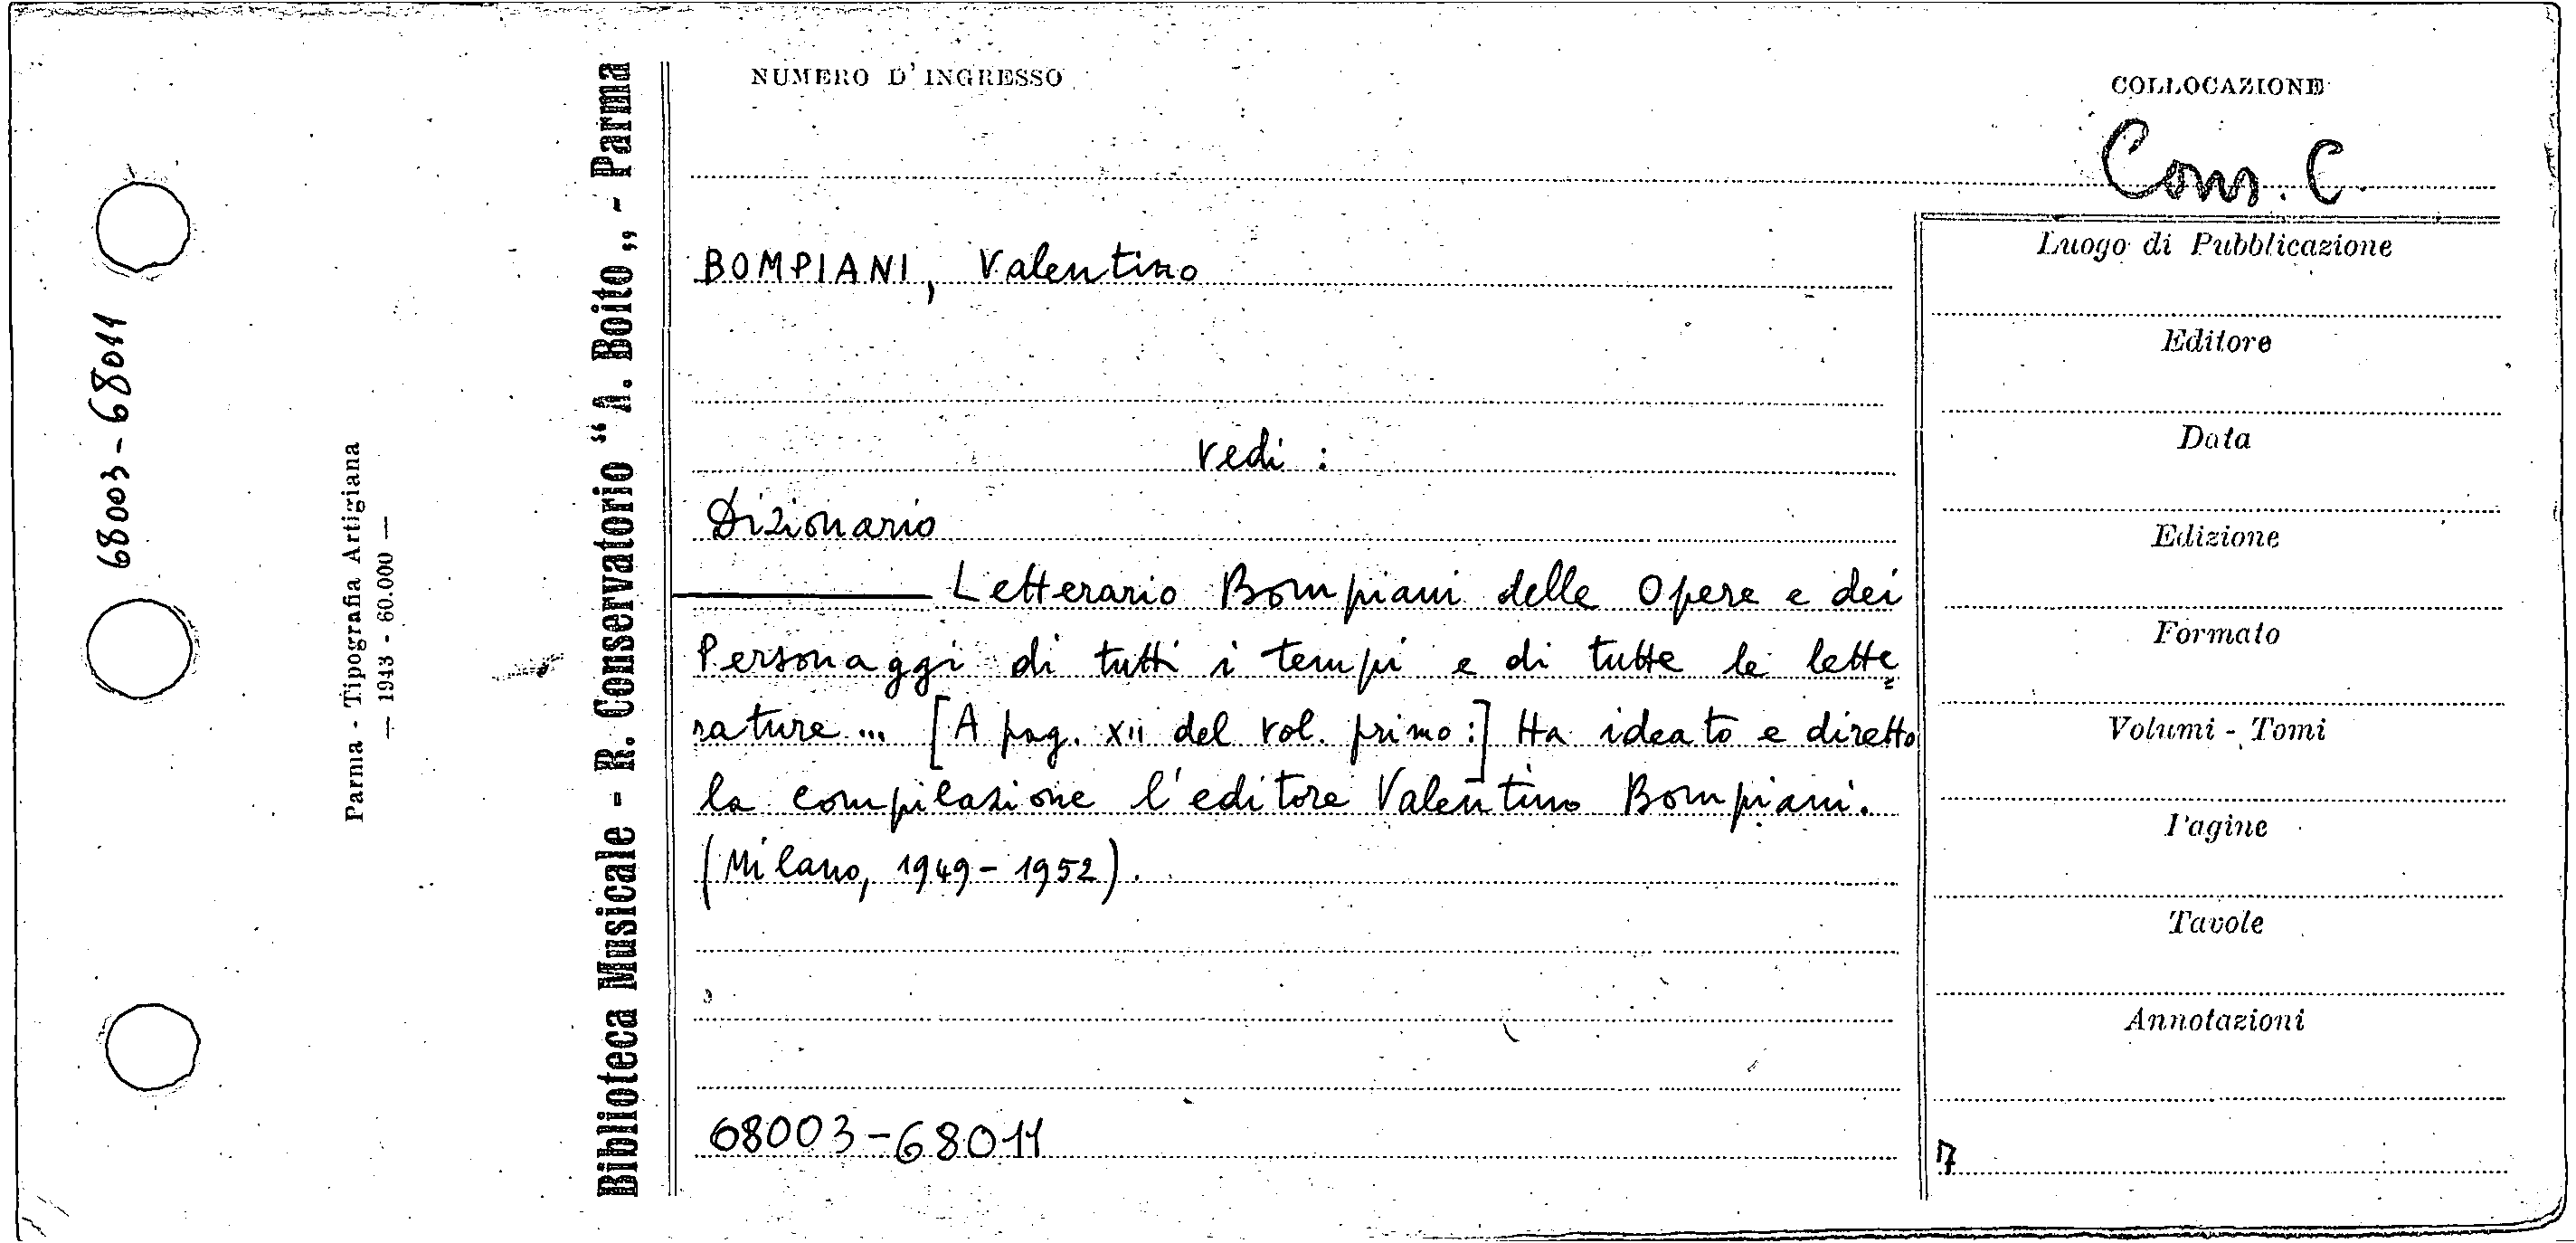 68003-68011
Parma - Tipografia Artigiana
— 1943 - 60.000 —
Biblioteca Musicale - R. Conservatorio “A. Boito„ - Parma
NUMERO D'INGRESSO
COLLOCAZIONE
Cons. C.
BOMPIANI, Valentino
vedi :
Dizionario
——— Letterario Bompiani delle Opere e dei
Personaggi di tutti i tempi e di tutte le lette=
rature ... [A pag. XII del vol. primo:] Ha ideato e diretto
la compilazione l'editore Valentino Bompiani.
(Milano, 1949-1952).
68003-68011
Luogo di Pubblicazione
Editore
Data
Edizione
Formato
Volumi - Tomi
Pagine
Tavole
Annotazioni
7